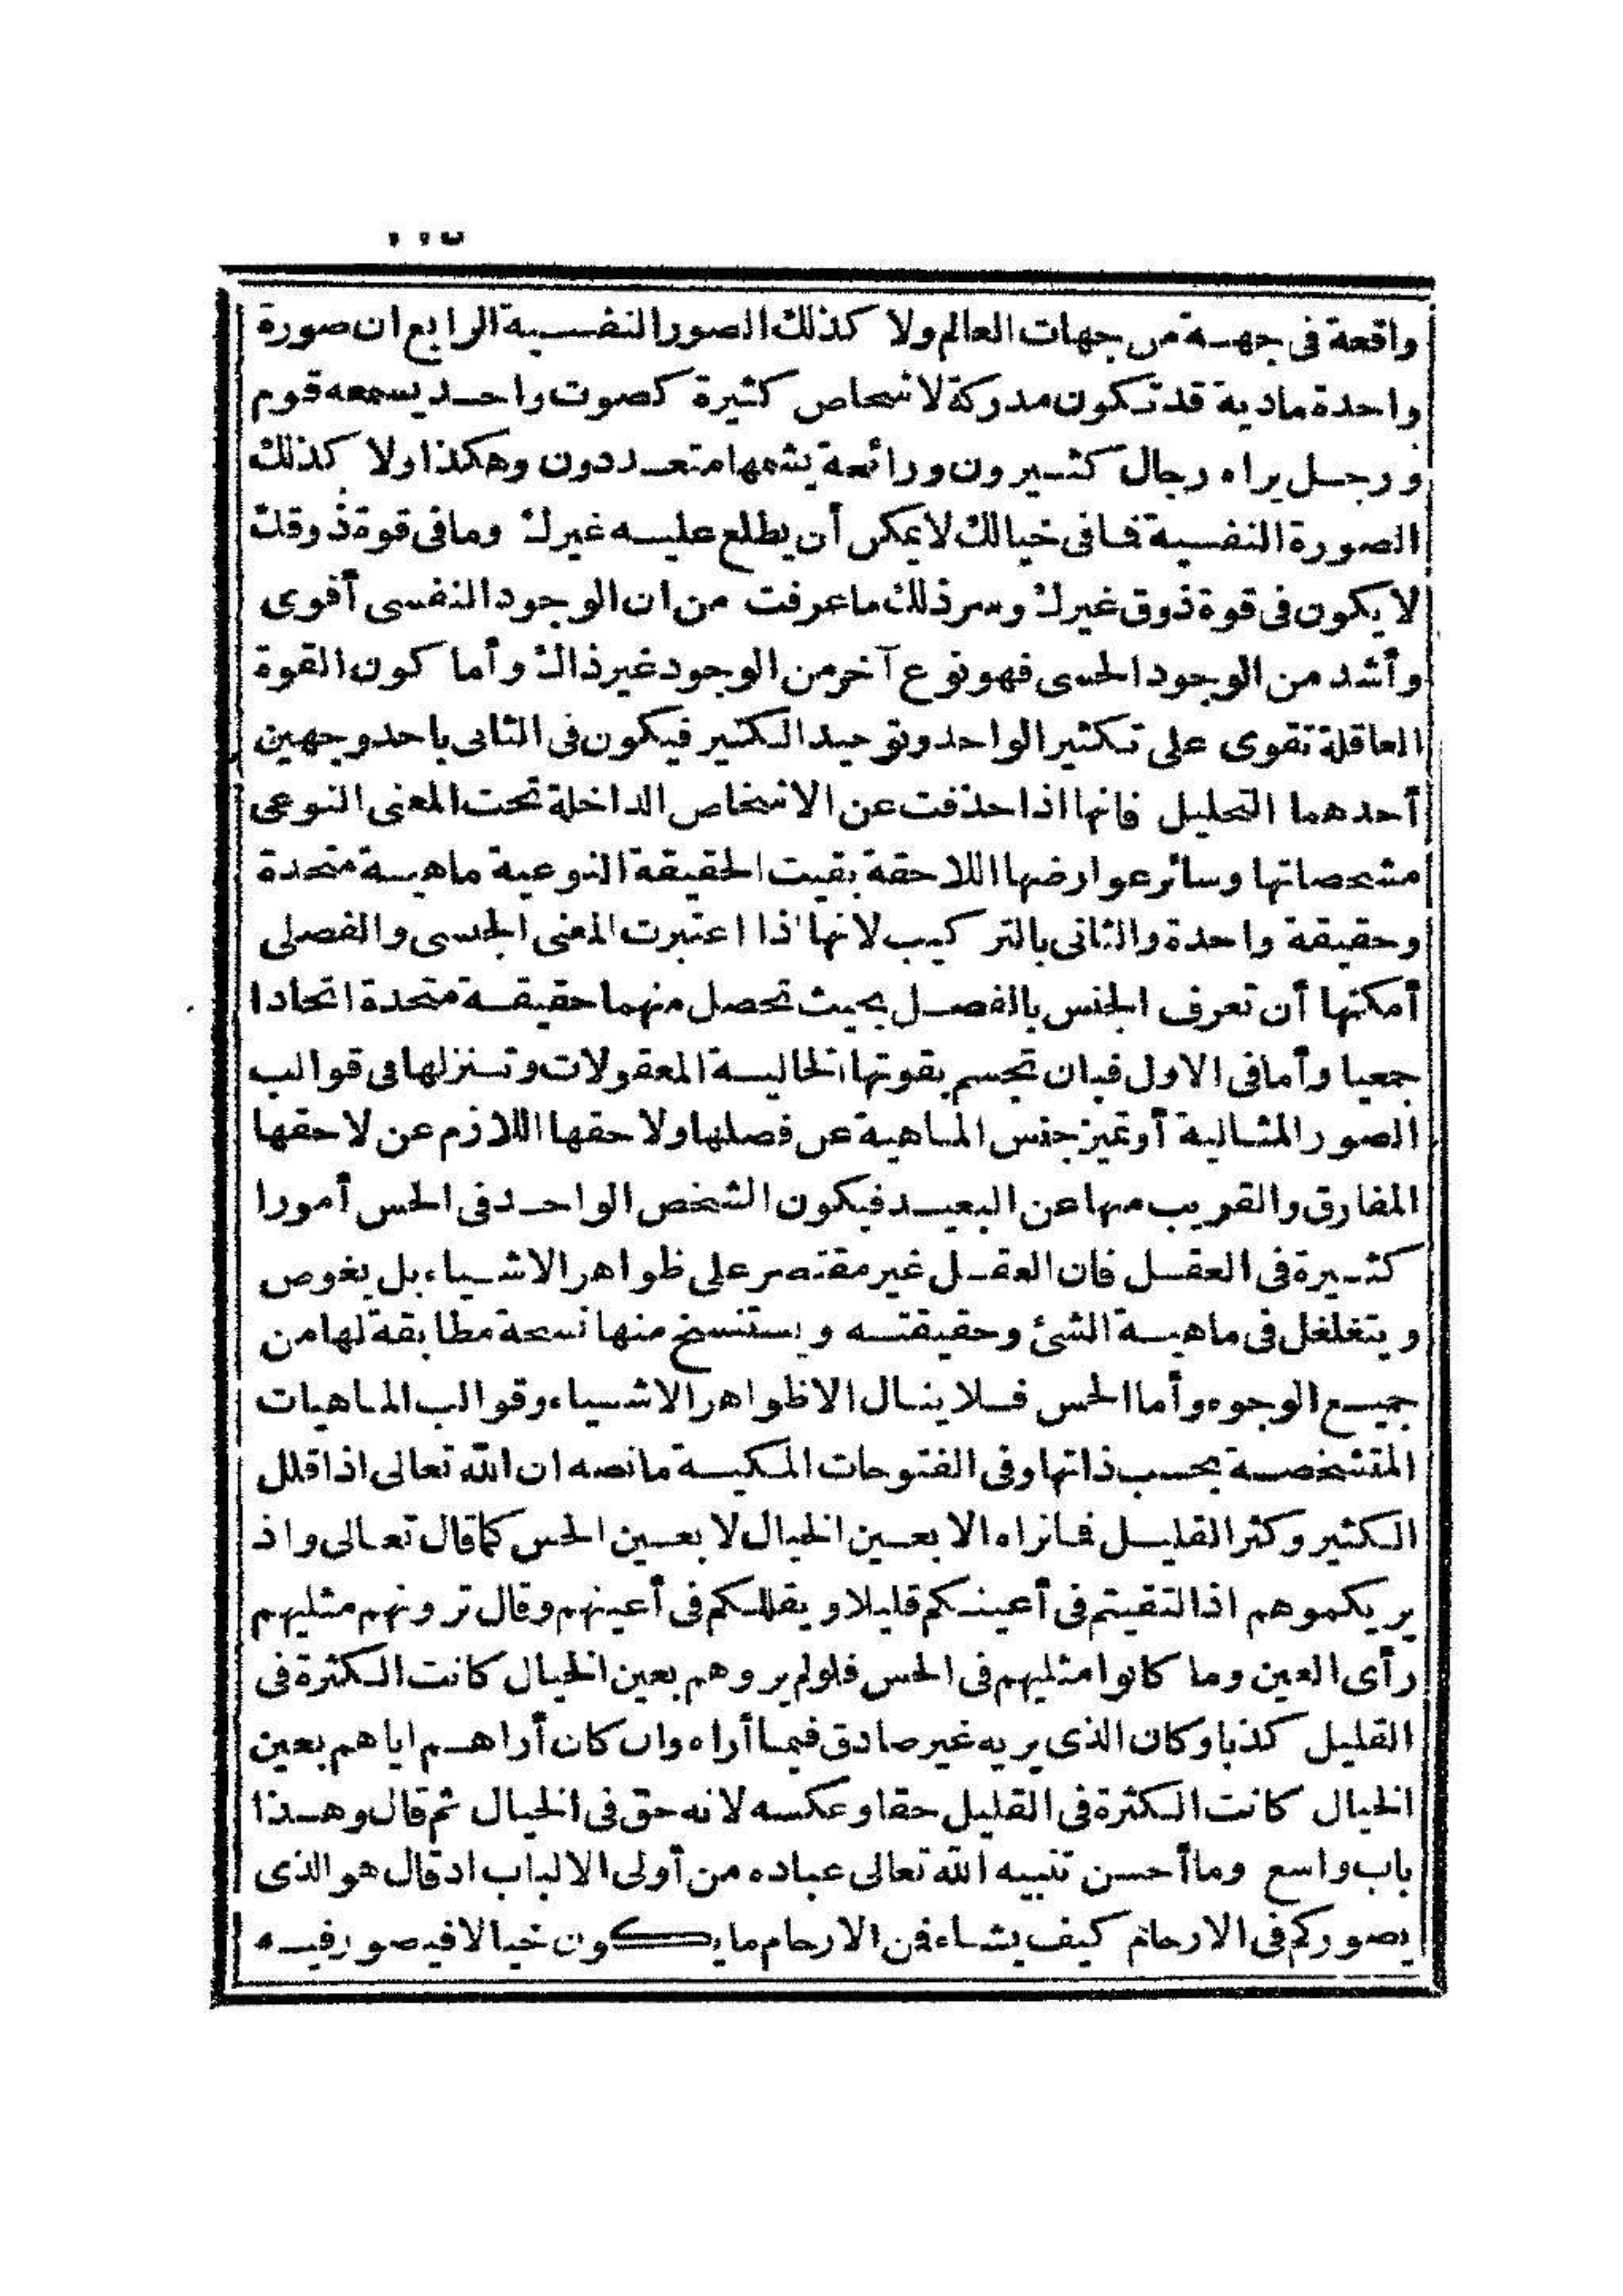 واقعة فى جهة من جهات العالم ولا كذلك الصور النفسية الرابع ان صورة
واحدة مادية قد تكون مدركة لاشخاص كثيرة كصوت واحد يسمعه قوم
ورجل يراه رجال كثيرون ورائحة يشمها متعددون وهكذا ولا كذلك
الصورة النفسية فما فى خيالك لا يمكن أن يطلع عليه غيرك وما فى قوة ذوقك
لا يكون فى قوة ذوق غيرك وسر ذلك ما عرفت من ان الوجود النفسى أقوى
وأشد من الوجود الحسى فهو نوع آخر من الوجود غير ذاك وأما كون القوة
العاقلة تقوى على تكثير الواحد وتوحيد الكثير فيكون فى الثانى باحد وجهين
أحدهما التحليل فانها اذا حذفت عن الاشخاص الداخلة تحت المعنى النوعى
مشخصاتها وسائر عوارضها اللاحقة بقيت الحقيقة النوعية ماهية متحدة
وحقيقة واحدة والثانى بالتركيب لانها اذا اعتبرت المعنى الجنسى والفصلى
أمكنها أن تعرف الجنس بالفصل بحيث تحصل منهما حقيقة متحدة اتحادا
جمعيا وأما فى الاول فبان تجسم بقوتها الخالية المعقولات وتنزلها فى قوالب
الصور المثالية أو تميز جنس الماهية عن فصلها ولاحقها اللازم عن لاحقها
المفارق والقريب منها عن البعيد فيكون الشخص الواحد فى الحس أمورا
كثيرة فى العقل فان العقل غير مقتصر على ظواهر الاشياء بل يغوص
ويتغلغل فى ماهية الشئ وحقيقته ويستنسخ منها نسخة مطابقة لها من
جميع الوجوه وأما الحس فلا ينال الا ظواهر الاشياء وقوالب الماهيات
المتشخصة بحسب ذاتها وفى الفتوحات المكية ما نصه ان الله تعالى اذا قلل
الكثير وكثر القليل فما نراه الا بعين الخيال لا بعين الحس كما قال تعالى واذ
يريكموهم اذ التقيتم فى أعينكم قليلا ويقللكم فى أعينهم وقال ترونهم مثليهم
رأى العين وما كانوا مثليهم فى الحس فلو لم يروهم بعين الخيال كانت الكثرة فى
القليل كذبا وكان الذى يريه غير صادق فيما أراه وان كان أراهم اياهم بعين
الخيال كانت الكثرة فى القليل حقا وعكسه لانه حق فى الخيال ثم قال وهذا
باب واسع وما أحسن تنبيه الله تعالى عباده من أولى الالباب اذ قال هو الذى
يصوركم فى الارحام كيف يشاء فمن الارحام ما يكون خيالا فيصور فيه